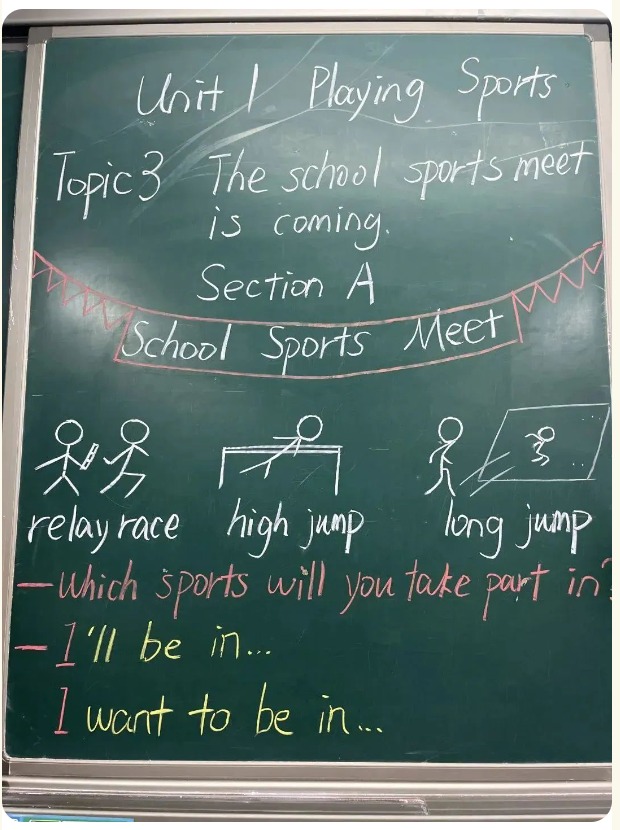 Unit 1 Playing Sports
Topic 3 The school sports meet
is coming.
Section A
School Sports Meet
relay race high jump long jump
—Which sports will you take part in?
—I'll be in...
I want to be in...